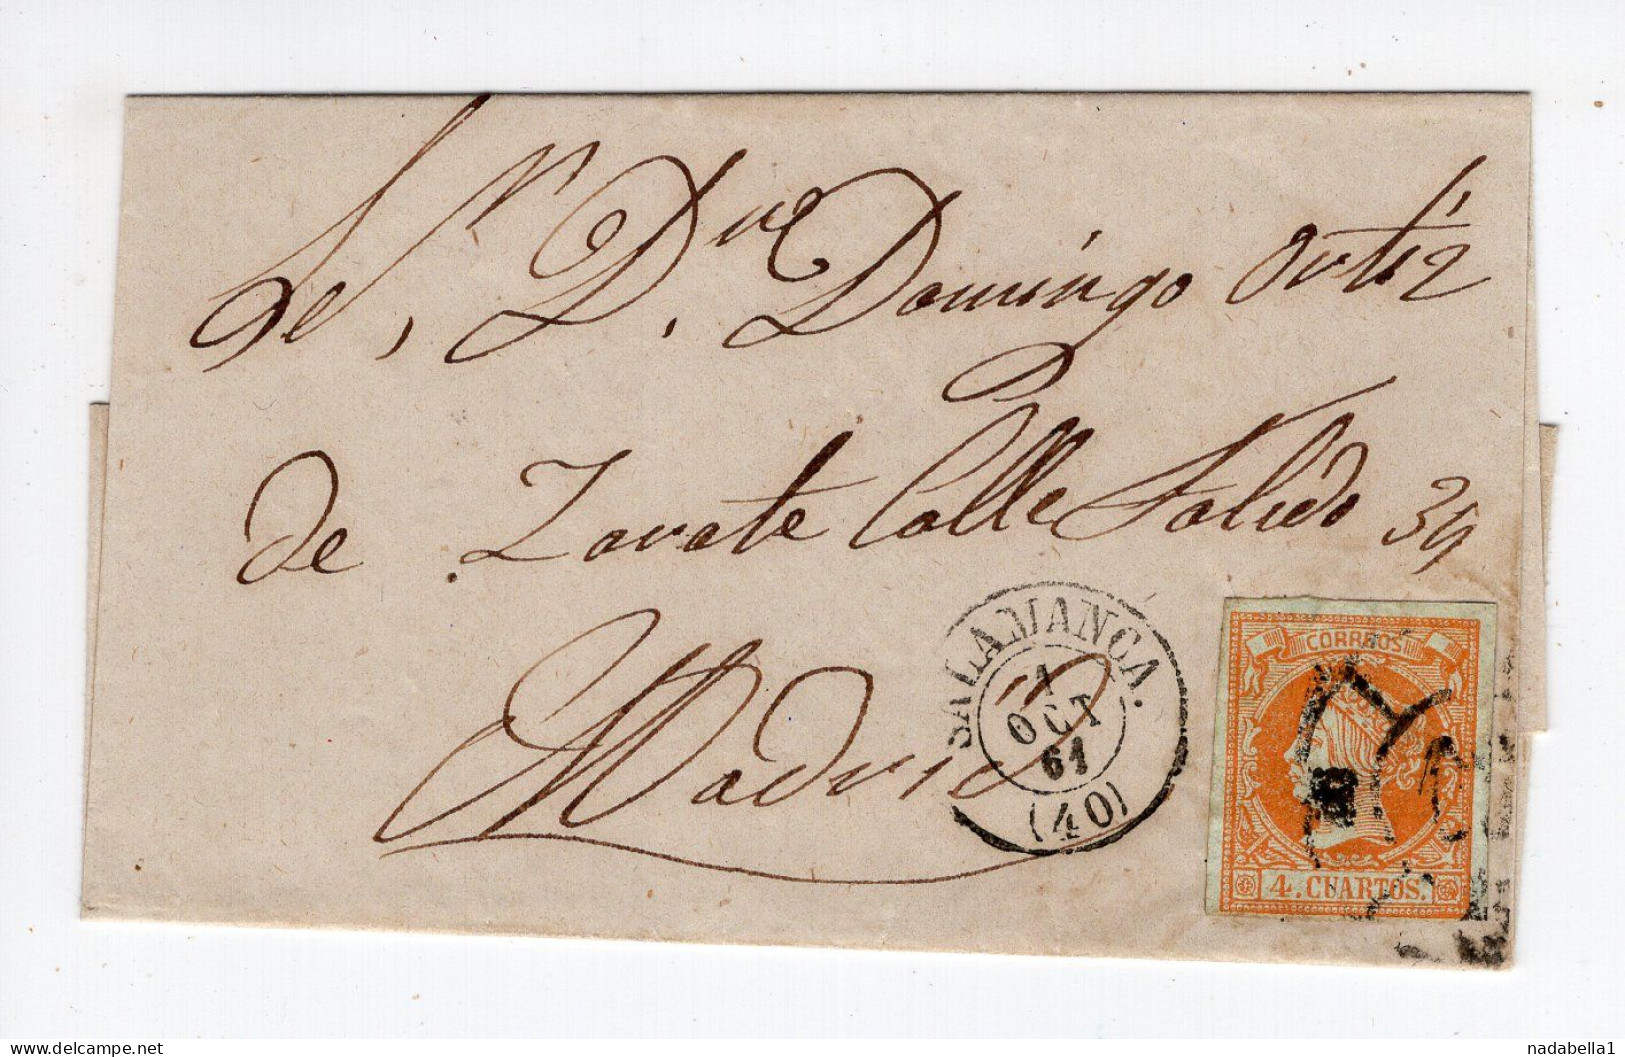 Sr. Dn. Domingo Ortiz
de Zarate Calle Salido 39
Madrid
SALAMANCA.
1
OCT
61
(40)
CORREOS
4. CUARTOS.
delcampe.net
nadabella1